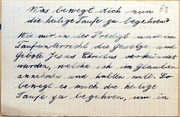 Was bewegt dich nun 62
die heilige Taufe zu begehren?
Wie mir in der Predigt und im
Taufunterricht die Gesetze und
Gebote Jesus Christus verkündet
wurden, welche ich im Glauben
annehmen und halten will. So
bewegt es mich die heilige
Taufe zu begehren, um in